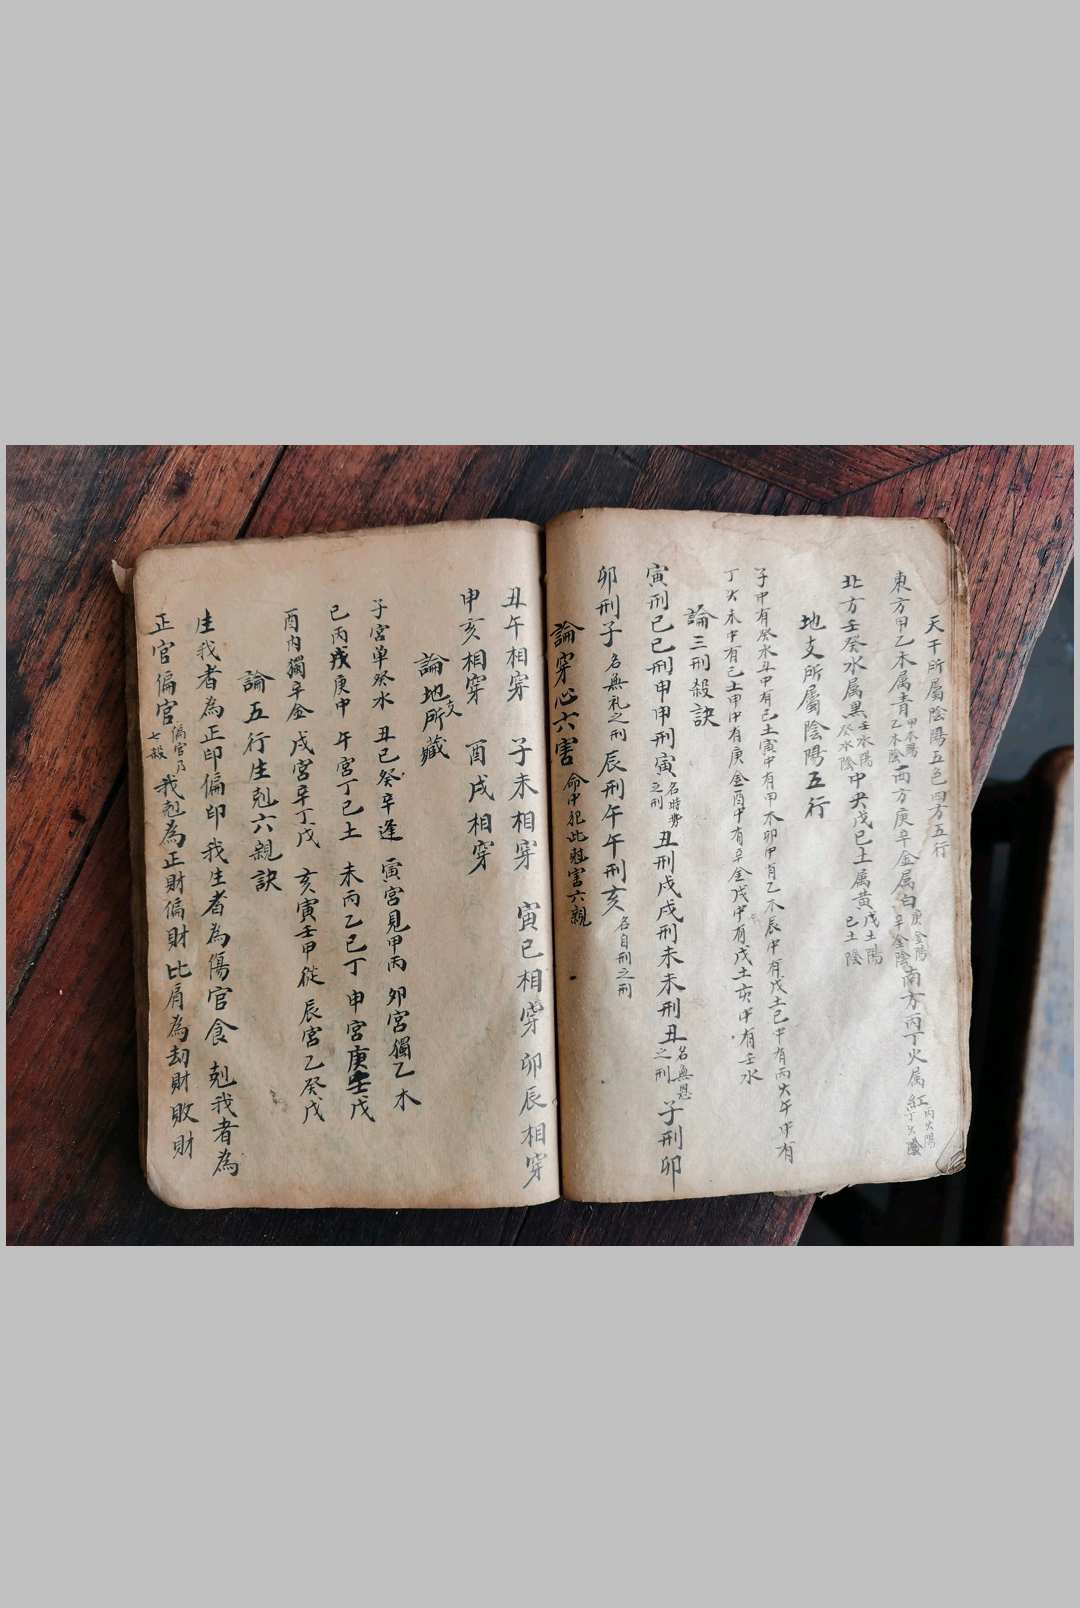 天干所屬陰陽五色四方五行
東方甲乙木属青甲木陽乙木陰西方庚辛金属白庚金陽辛金陰南方丙丁火属紅丙火陽丁火陰
北方壬癸水属黑壬水陽癸水陰中央戊己土属黄戊土陽己土陰
地支所屬陰陽五行
子中有癸水丑中有己土寅中有甲木卯中有乙木辰中有戊土巳中有丙火午中有
丁火未中有己土申中有庚金酉中有辛金戌中有戊土亥中有壬水
論三刑殺訣
寅刑巳巳刑申申刑寅名時勢之刑丑刑戌戌刑未未刑丑名無恩之刑子刑卯
卯刑子名無礼之刑辰刑午午刑亥名自刑之刑
論穿心六害命中犯此尅害六親
丑午相穿 子未相穿 寅巳相穿 卯辰相穿
申亥相穿 酉戌相穿
論地支所藏
子宮单癸水 丑己癸辛逢 寅宮見甲丙 卯宮獨乙木
巳丙戊庚申 午宮丁己土 未丙乙己丁 申宮庚壬戊
酉内獨辛金 戌宮辛丁戊 亥寅壬甲從 辰宮乙癸戊
論五行生剋六親訣
生我者為正印偏印 我生者為傷官食 剋我者為
正官偏官偏官乃七殺 我剋為正財偏財 比肩為劫財敗財